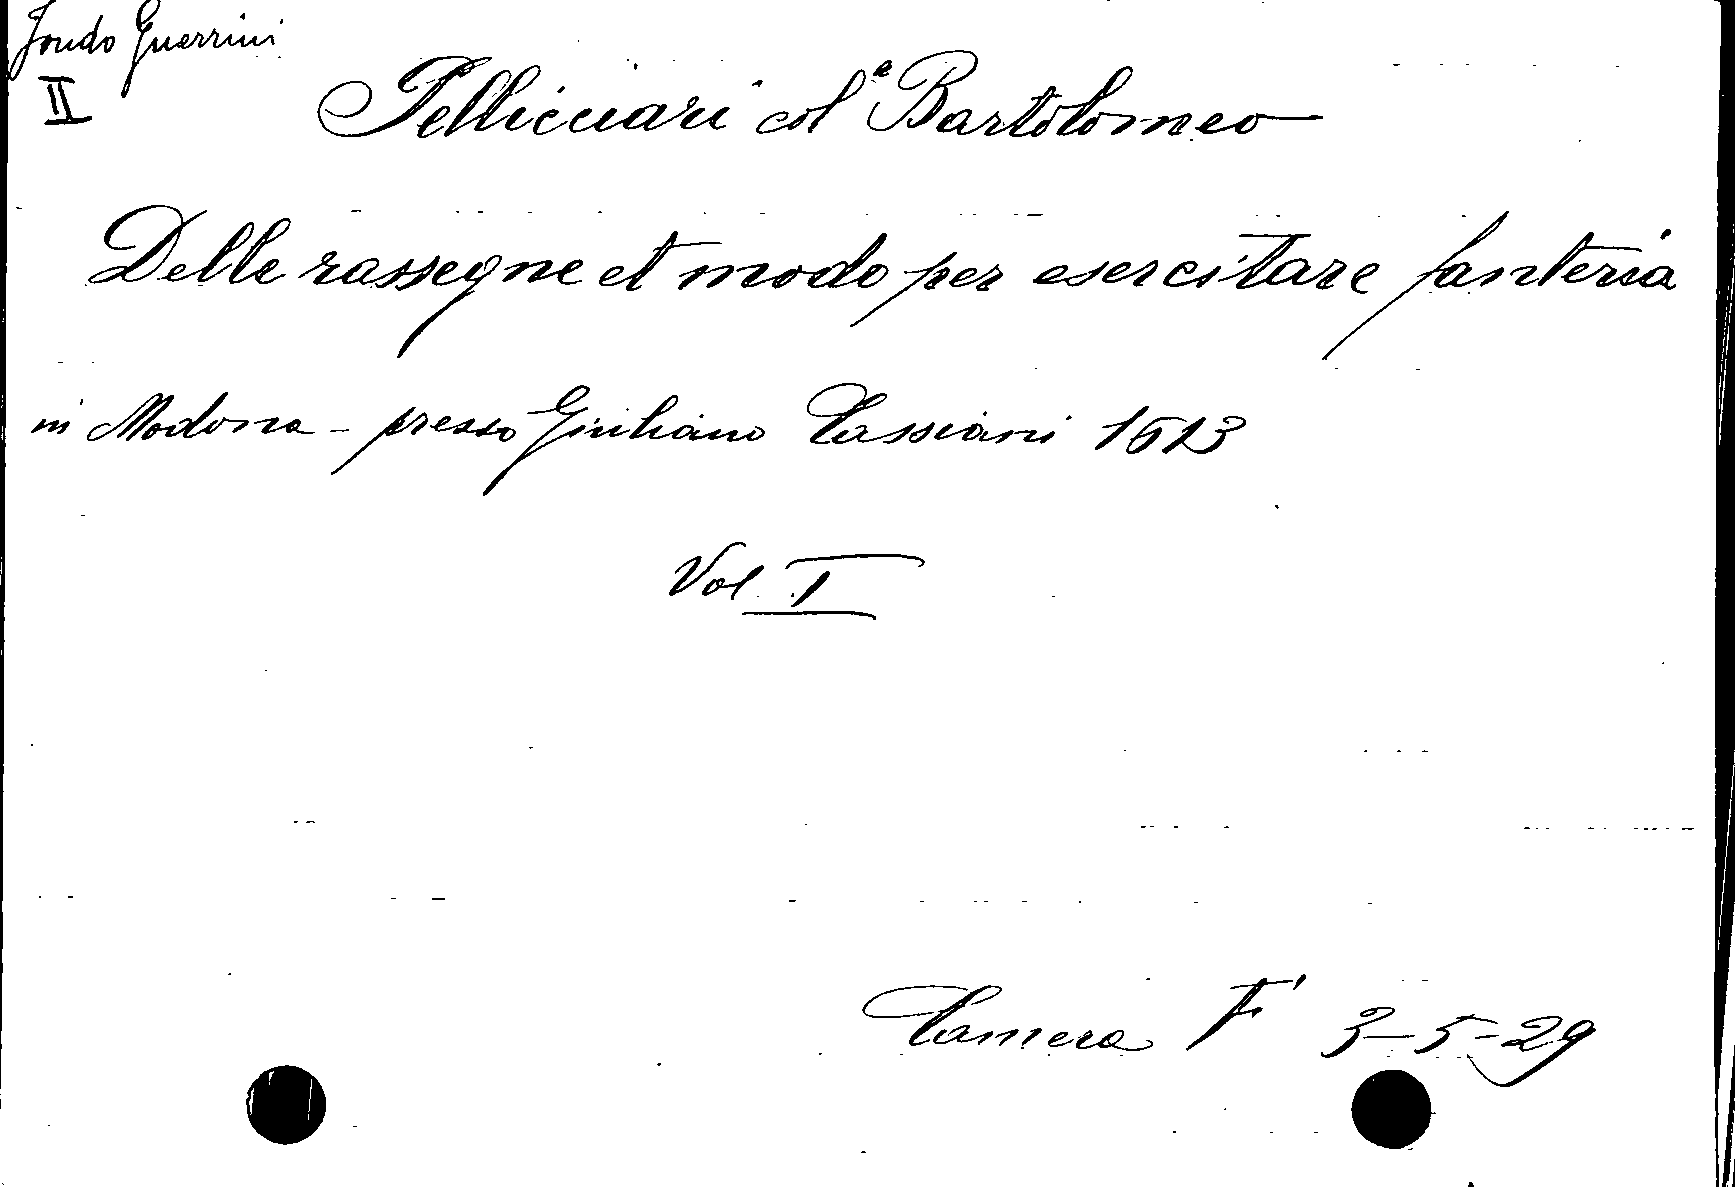 Fondo Guerrini
II
Pellicciari col.º Bartolomeo
Delle rassegne et modo per esercitare fanteria
in Modona - presso Giuliano Cassiani 1613
Vol I
Camera F' 3-5-29